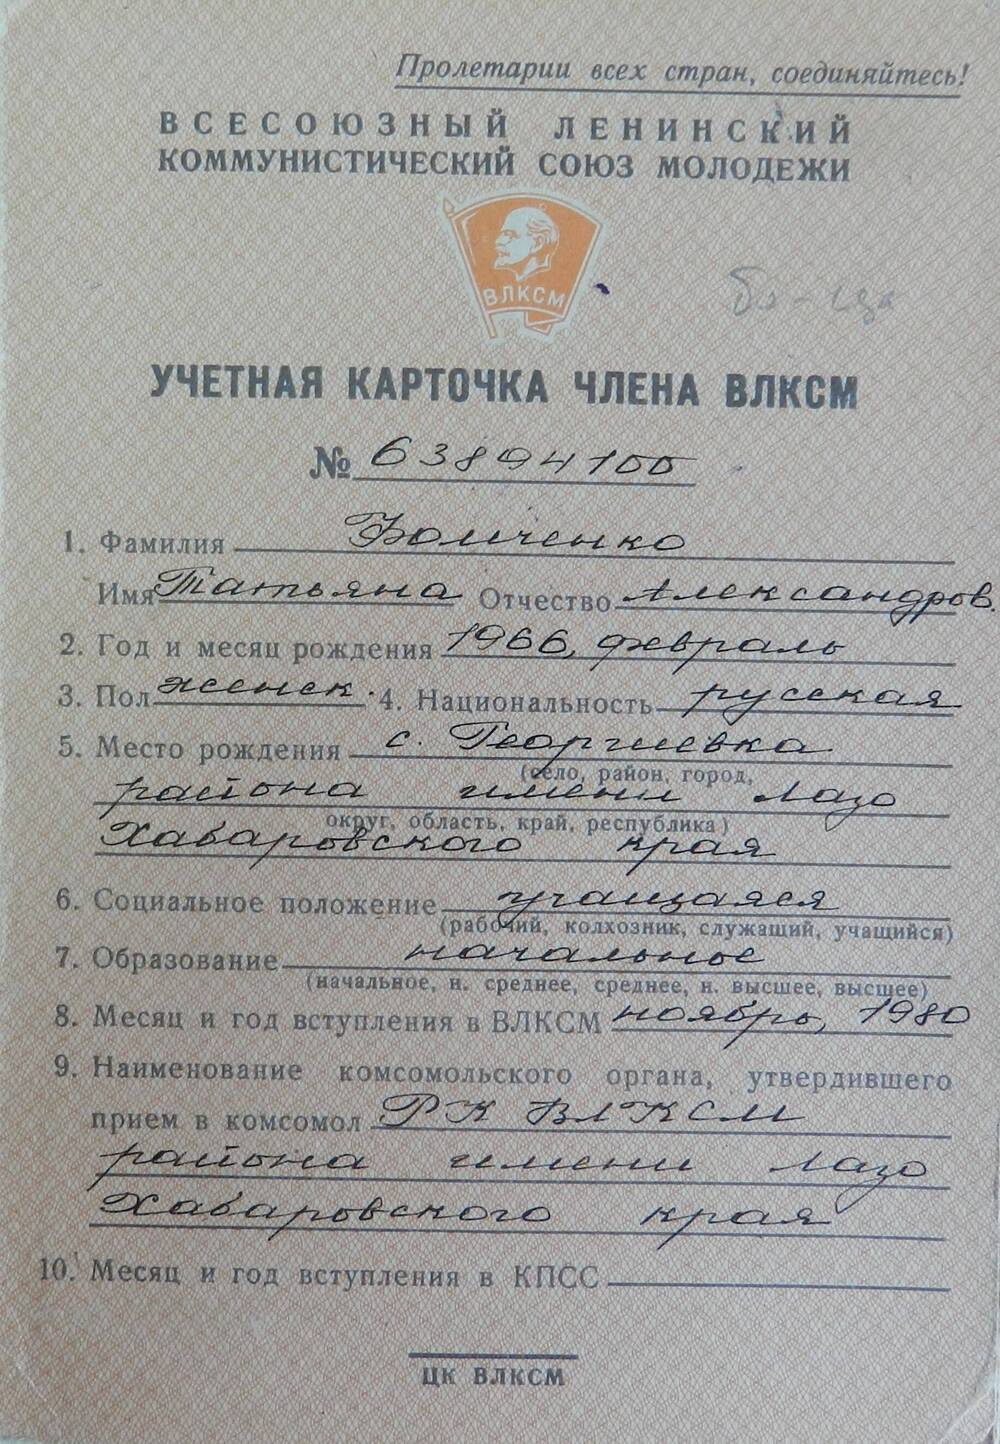 Пролетарии всех стран, соединяйтесь!
ВСЕСОЮЗНЫЙ ЛЕНИНСКИЙ
КОММУНИСТИЧЕСКИЙ СОЮЗ МОЛОДЕЖИ
ВЛКСМ
УЧЕТНАЯ КАРТОЧКА ЧЛЕНА ВЛКСМ
№ 63894100
1. Фамилия Бомченко
Имя Татьяна Отчество Александров.
2. Год и месяц рождения 1966, февраль
3. Пол женск. 4. Национальность русская
5. Место рождения с. Георгиевка
(село, район, город,
района имени Лазо
округ, область, край, республика)
Хабаровского края
6. Социальное положение учащаяся
(рабочий, колхозник, служащий, учащийся)
7. Образование начальное
(начальное, н. среднее, среднее, н. высшее, высшее)
8. Месяц и год вступления в ВЛКСМ ноябрь, 1980
9. Наименование комсомольского органа, утвердившего
прием в комсомол РК ВЛКСМ
района имени Лазо
Хабаровского края
10. Месяц и год вступления в КПСС
ЦК ВЛКСМ